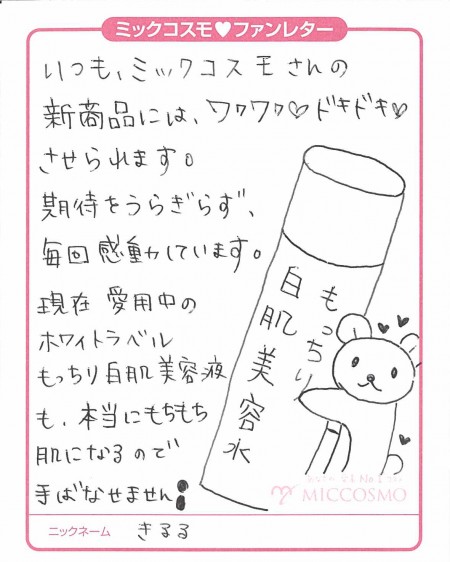 ミックコスモ♥ファンレター
いつも、ミックコスモさんの
新商品には、ワクワク♡ドキドキ♡
させられます。
期待をうらぎらず、
毎回感動しています。
現在 愛用中の
ホワイトラベル
もっちり白肌美容液
も、本当にもちもち
肌になるので
手ばなせません!
もっちり
白肌美容水
MICCOSMO
ニックネーム きるる